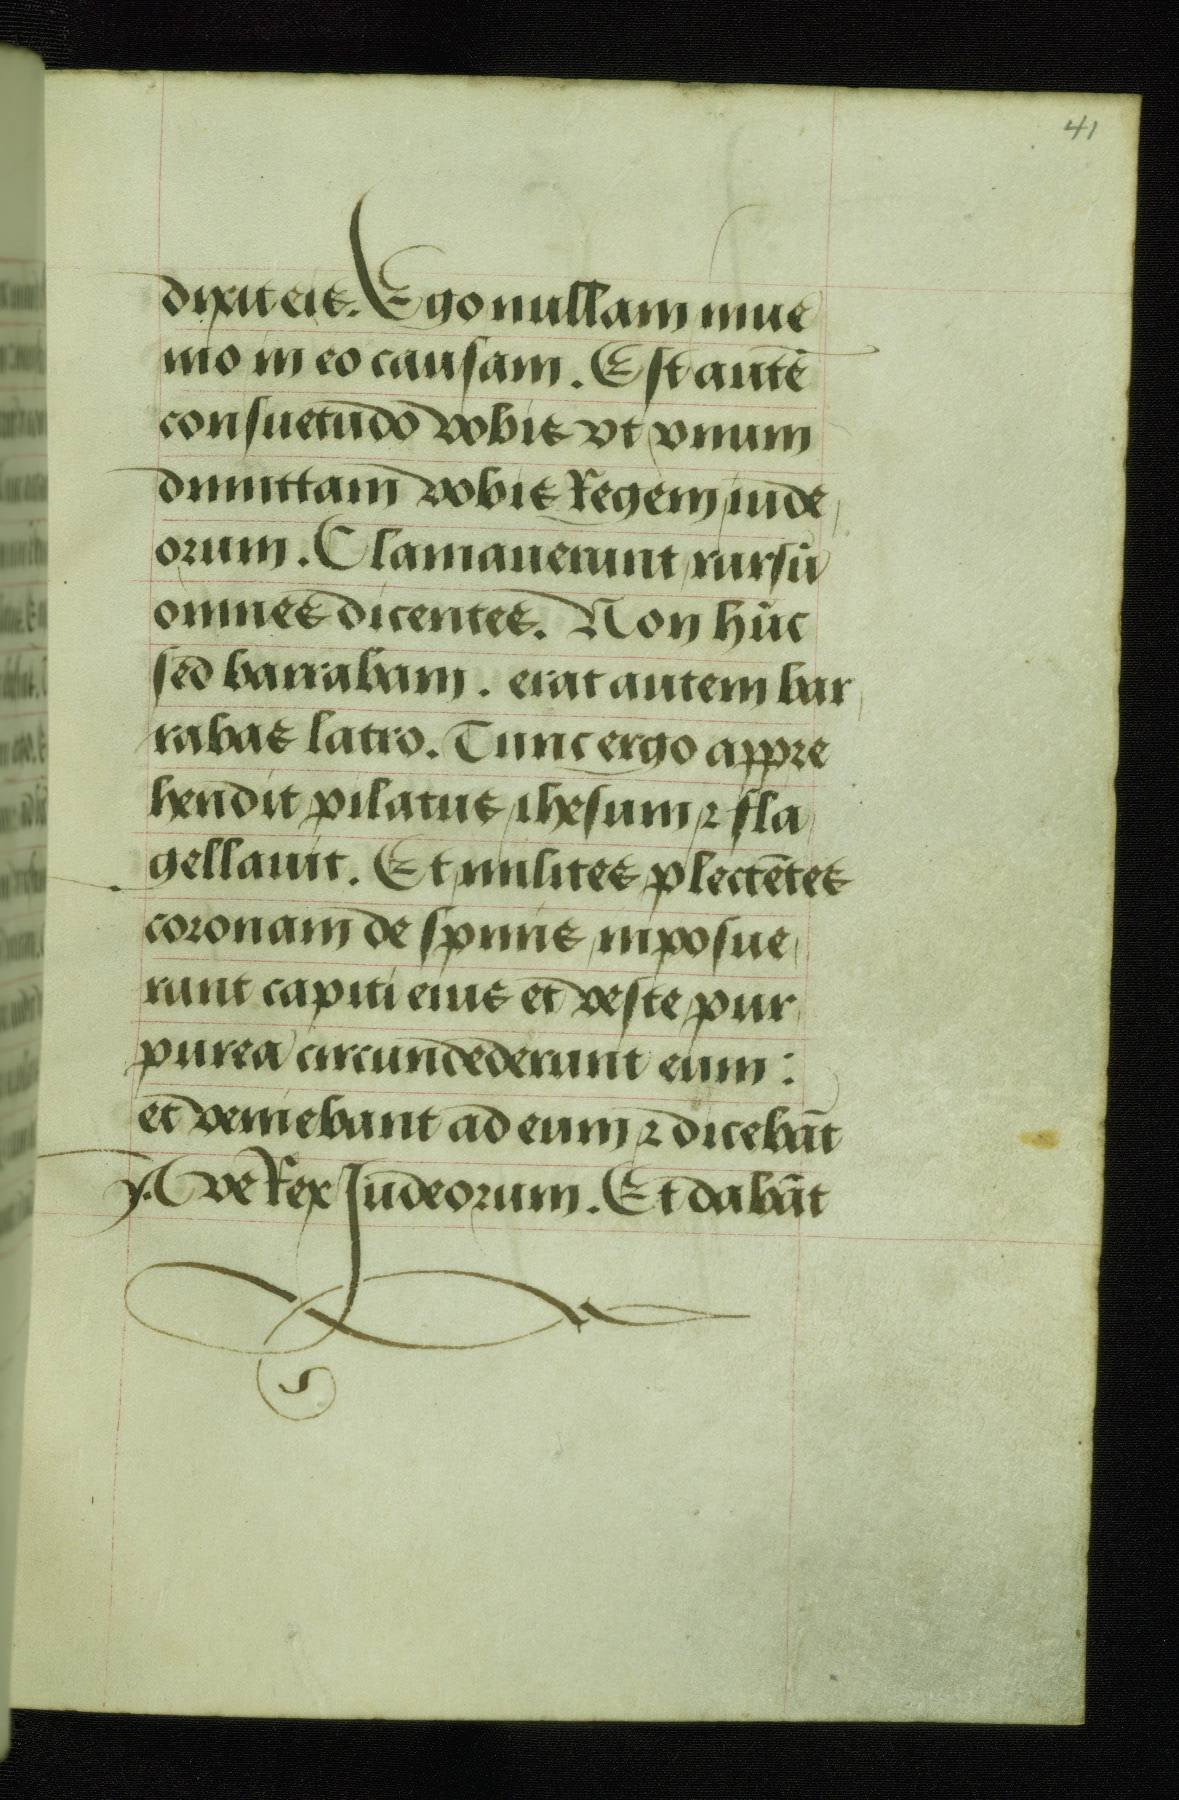 41
dixit eis. Ego nullam inue
nio in eo causam. Est autē
consuetudo vobis vt vnum
dimittam vobis Regem iude
orum. Clamauerunt rursū
omnes dicentes. Non hūc
sed barrabam. erat autem bar
rabas latro. Tunc ergo appre
hendit pilatus ihesum ⁊ fla
gellauit. Et milites plectētes
coronam de spinis inposue
runt capiti eius et veste pur
purea circundederunt eum:
et veniebant ad eum ⁊ dicebāt
Aue Rex Iudeorum. Et dabāt